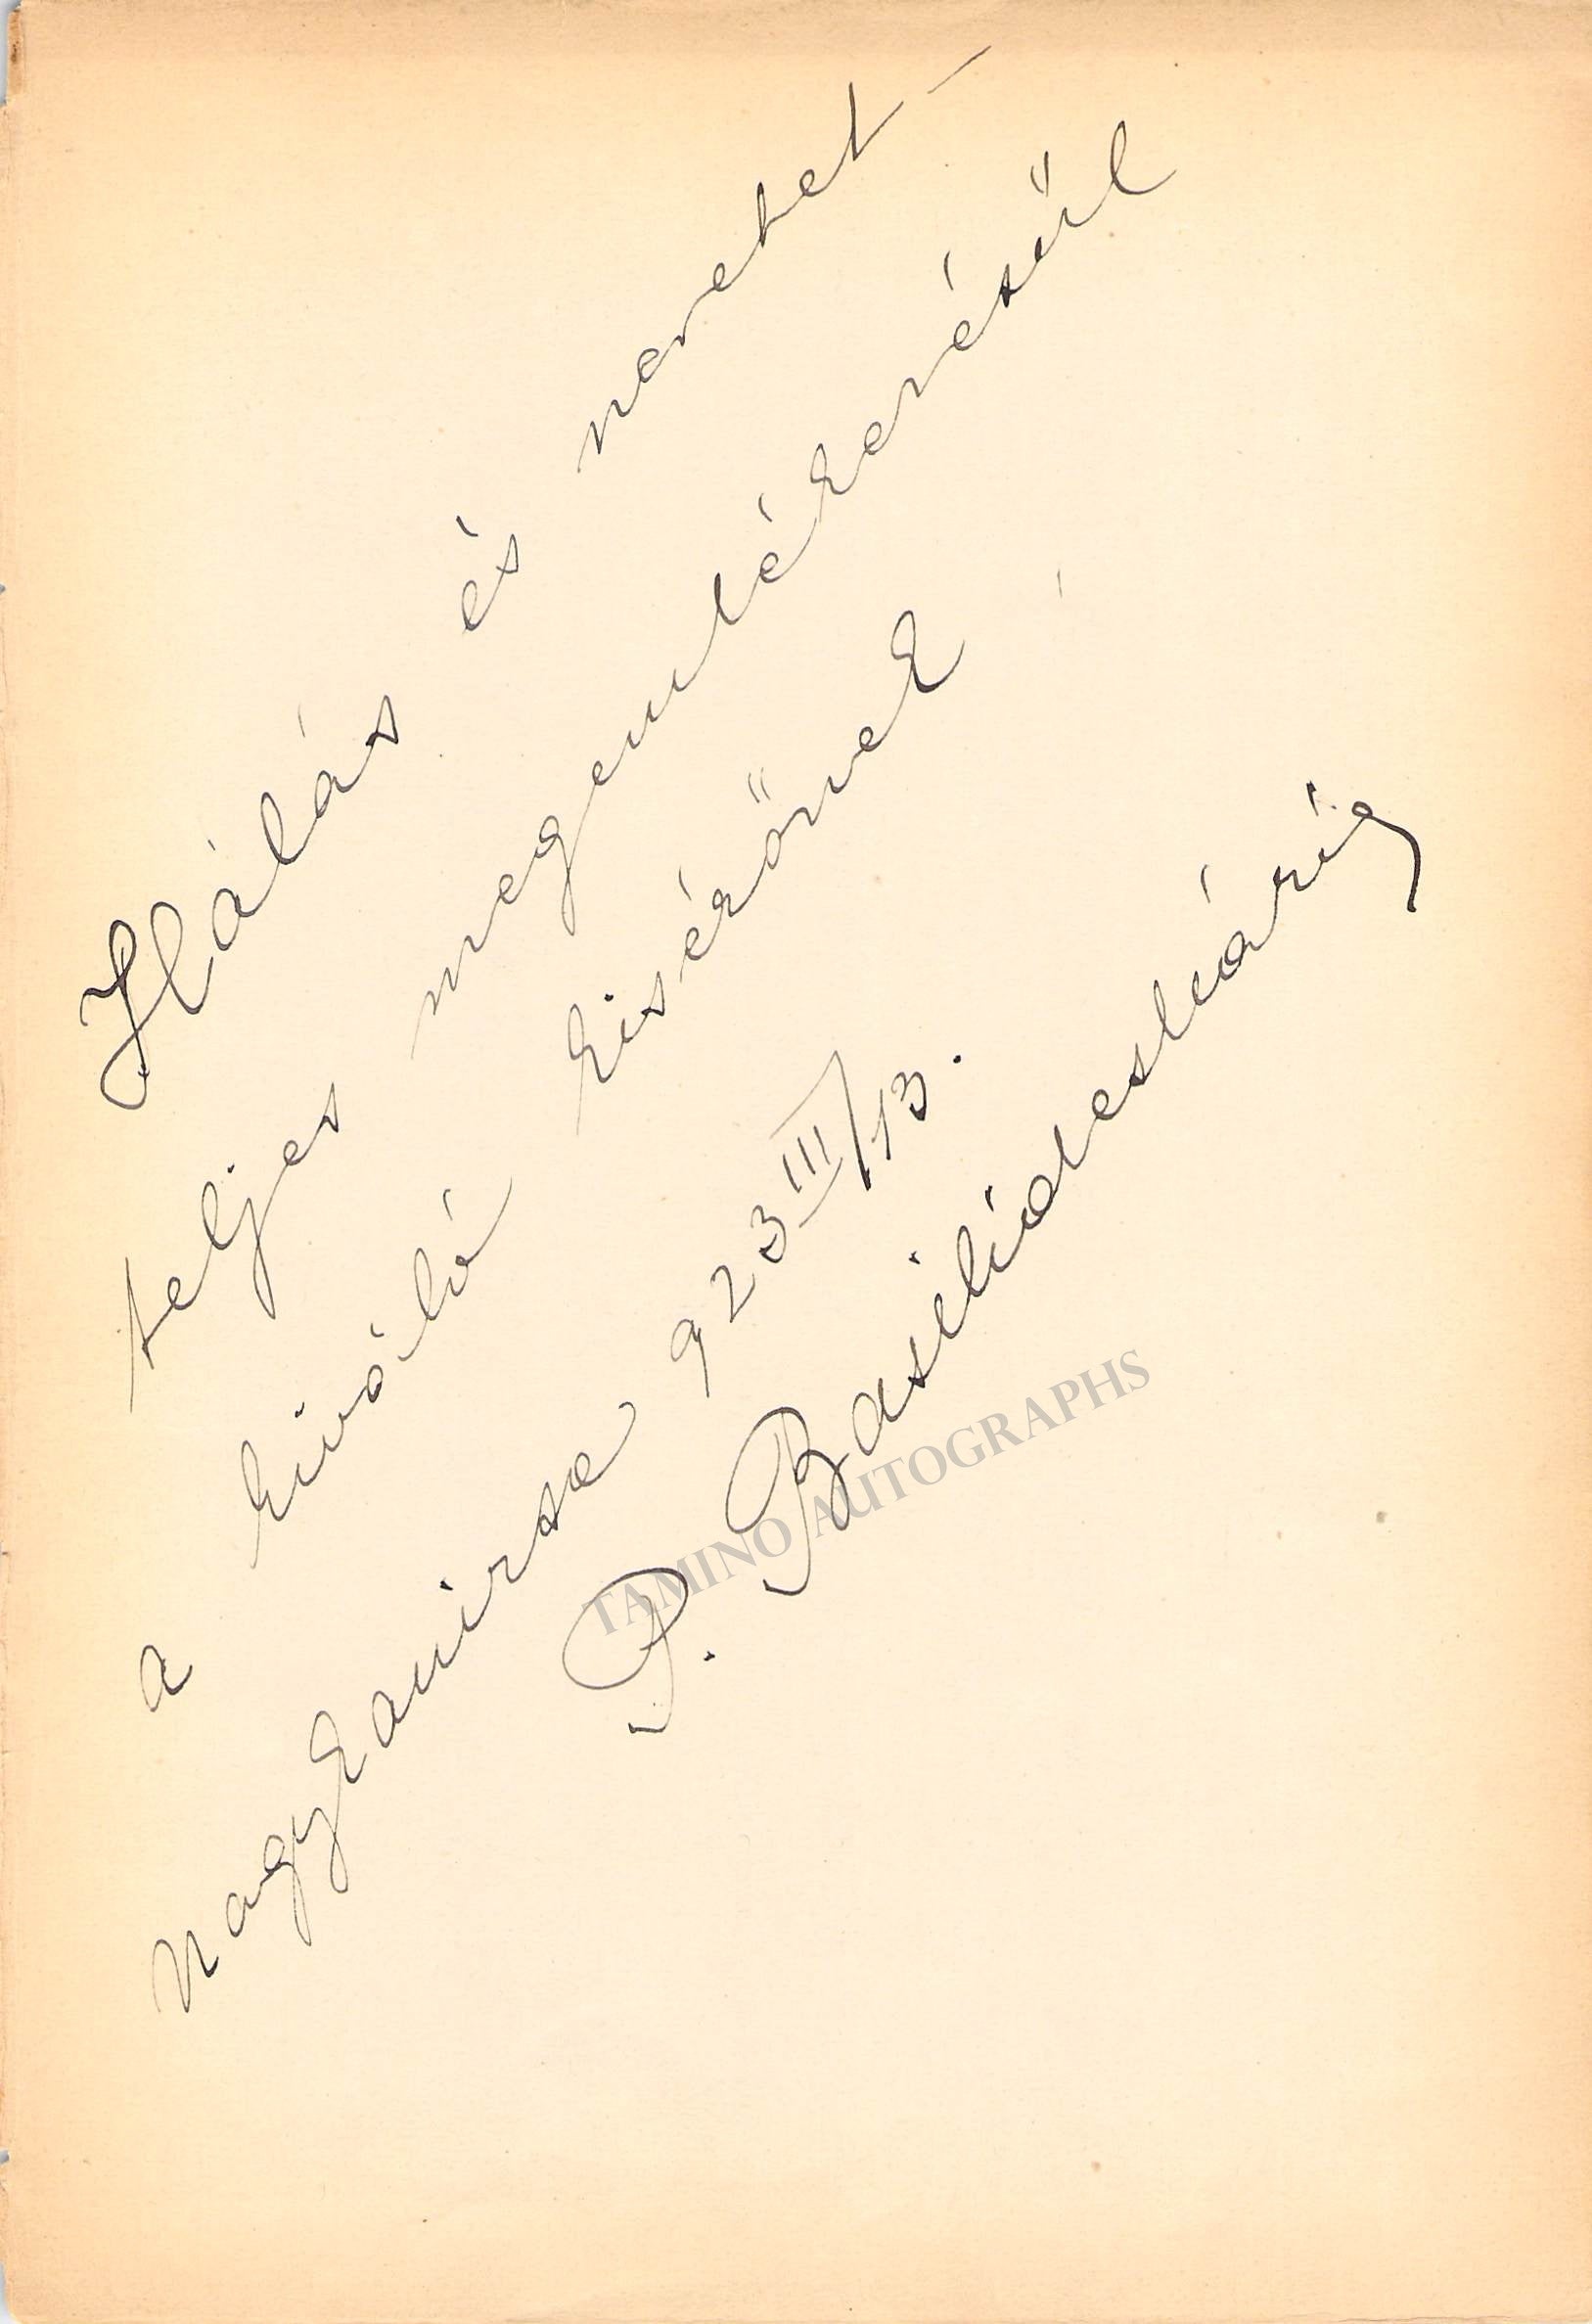 Hálás és szeretet-
teljes megemlékezésül
a kiváló kísérőnek
Nagykanizsa 923 III/13.
P. Basilides Mária
TAMINO AUTOGRAPHS